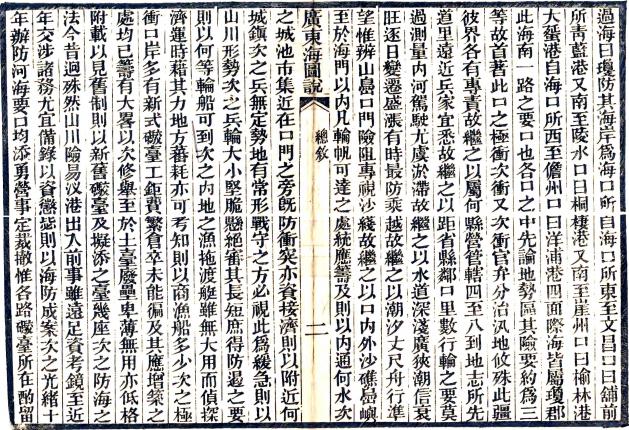 過海曰瓊防其海岸爲海口所自海口所東至文昌口曰鋪前
所青藍港又南至陵水口曰桐棲港又南至崖州口曰榆林港
大蛋港自海口所西至儋州口曰洋浦港四面際海皆屬瓊郡
此海南一路之要口也各口之中先論地勢區其險要約爲三
等故首著此口之極衝次衝又次衝官弁分治汛地攸殊此疆
彼界各有專責故繼之以屬何縣營管轄四至八到地志所先
道里遠近兵家宜悉故繼之以距省縣鄰口里數行輪之要莫
過測量內河駕駛尤虞淤滯故繼之以水道深淺廣狹潮信衰
旺逐日變遷盛漲有時最防乘越故繼之以潮汐丈尺舟行準
望惟辨山島口門險阻專視沙綫故繼之以口內外沙礁島嶼
至於海門以內凡輪帆可達之處統應籌及則以內通何水次
廣東海圖說 總敘 二
之城池市集近在口門之旁旣防衝突亦資接濟則以附近何
城鎮次之兵無定勢地有常形戰守之方必視此爲緩急則以
山川形勢次之兵輪大小堅脆懸絕審其長短庶得防遏之要
則以何等輪船可到次之內地之漁拖渡艇雖無大用而偵探
濟運時藉其力地方蕃耗亦可考知則以商漁船多少次之極
衝口岸多有新式礮臺工鉅費繁倉卒未能徧及其應增築之
處均已籌有大畧以次修舉至於土臺廢壘卑薄無用亦低格
附載以見舊制則以新舊礮臺及擬添之臺幾座次之防海之
法今昔迥殊然山川險易汊港出入前事雖遠足資考鏡至近
年交涉諸務尤宜備錄以資懲毖則以海防成案次之光緒十
年辦防河海要口均添勇營事定裁撤惟各路礮臺所在酌留